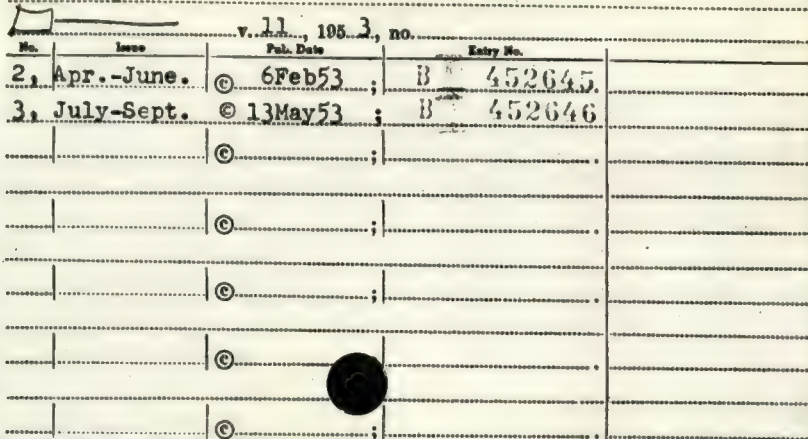 v. 11, 195 3, no.
No. Issue Pub. Date Entry No.
2, Apr.-June. © 6Feb53 ; B 452645.
3, July-Sept. © 13May53 ; B 452646
© ; .
© ; .
© ; .
© ; .
© ;